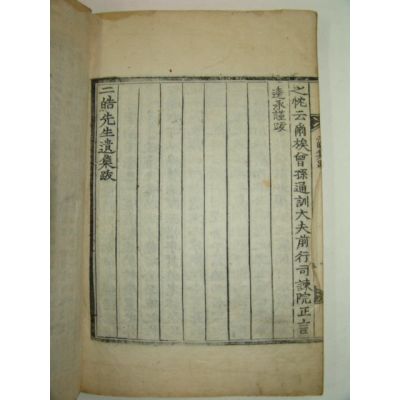 之忱云爾族曾孫通訓大夫前行司諫院正言
達永謹跋
二皓先生遺集跋